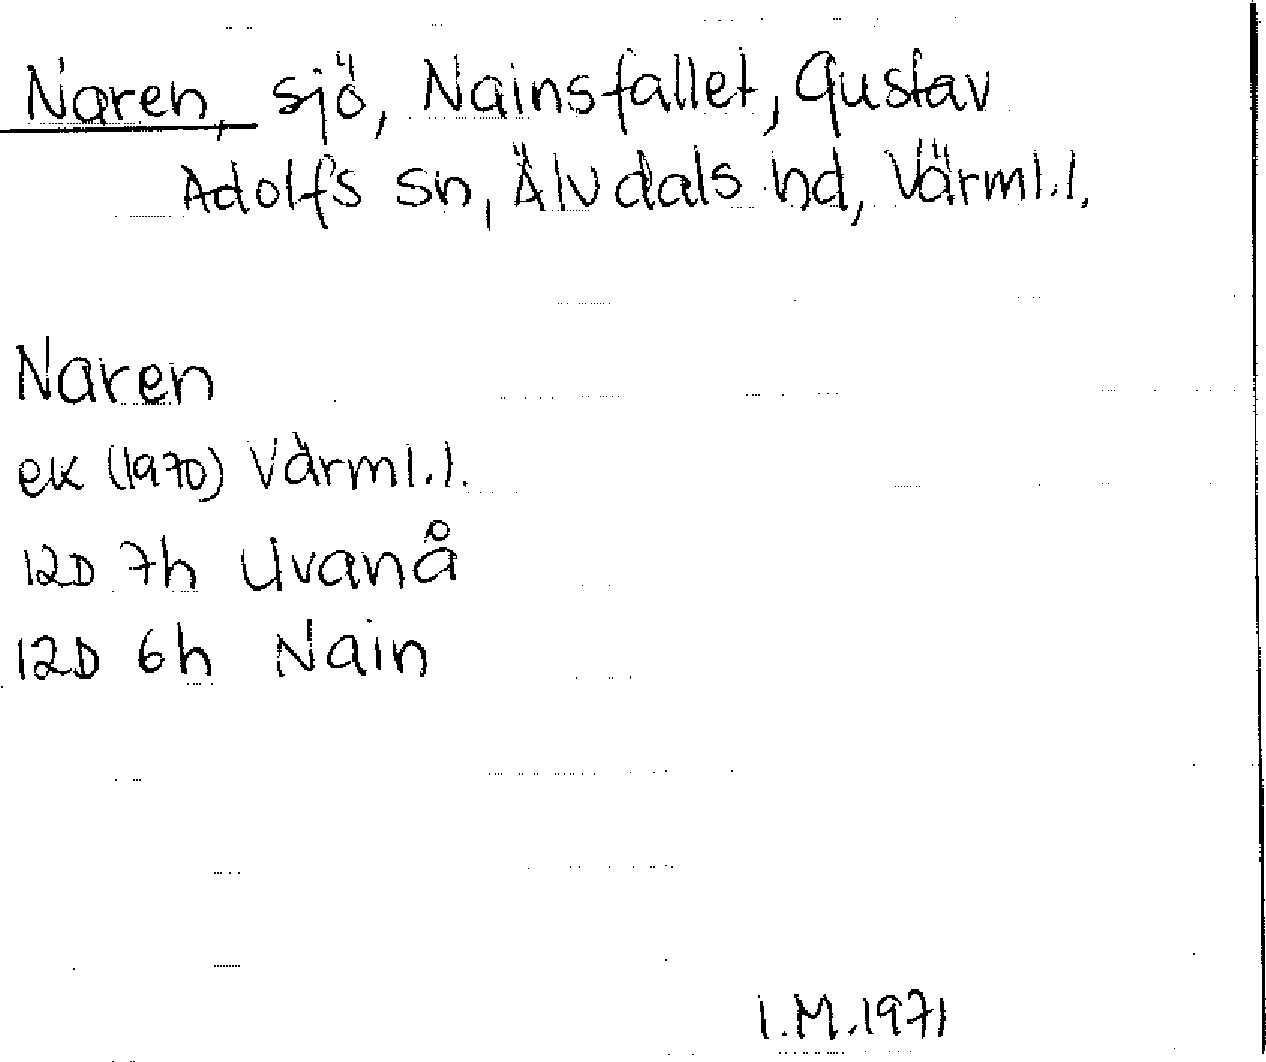 Naren, sjö, Nainsfallet, Gustav
Adolfs sn, Älvdals hd, Värml.l.
Naren
ek (1970) Värml.l.
12D 7h Uvanå
12D 6h Nain
I.M.1971